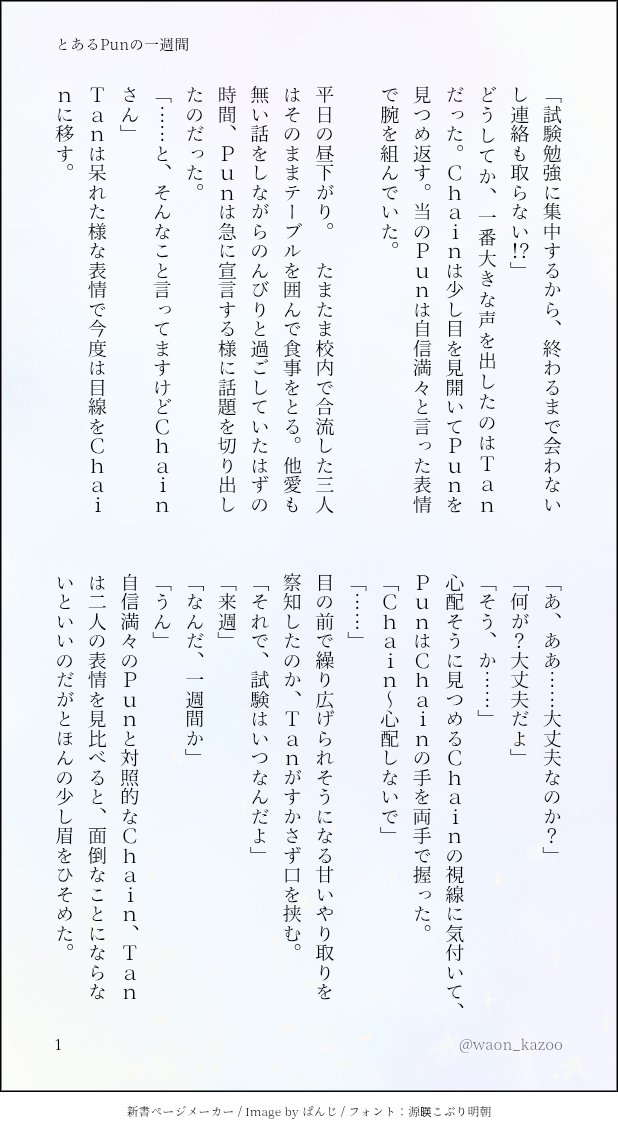 とあるPunの一週間
「試験勉強に集中するから、終わるまで会わない
し連絡も取らない!?」
どうしてか、一番大きな声を出したのはＴａｎ
だった。Ｃｈａｉｎは少し目を見開いてＰｕｎを
見つめ返す。当のＰｕｎは自信満々と言った表情
で腕を組んでいた。
平日の昼下がり。　たまたま校内で合流した三人
はそのままテーブルを囲んで食事をとる。他愛も
無い話をしながらのんびりと過ごしていたはずの
時間、Ｐｕｎは急に宣言する様に話題を切り出し
たのだった。
「……と、そんなこと言ってますけどＣｈａｉｎ
さん」
Ｔａｎは呆れた様な表情で今度は目線をＣｈａｉ
ｎに移す。
「あ、ああ……大丈夫なのか？」
「何が？大丈夫だよ」
「そう、か……」
心配そうに見つめるＣｈａｉｎの視線に気付いて、
ＰｕｎはＣｈａｉｎの手を両手で握った。
「Ｃｈａｉｎ〜心配しないで」
「……」
目の前で繰り広げられそうになる甘いやり取りを
察知したのか、Ｔａｎがすかさず口を挟む。
「それで、試験はいつなんだよ」
「来週」
「なんだ、一週間か」
「うん」
自信満々のＰｕｎと対照的なＣｈａｉｎ、Ｔａｎ
は二人の表情を見比べると、面倒なことにならな
いといいのだがとほんの少し眉をひそめた。
1
@waon_kazoo
新書ページメーカー / Image by ぱんじ / フォント：源暎こぶり明朝